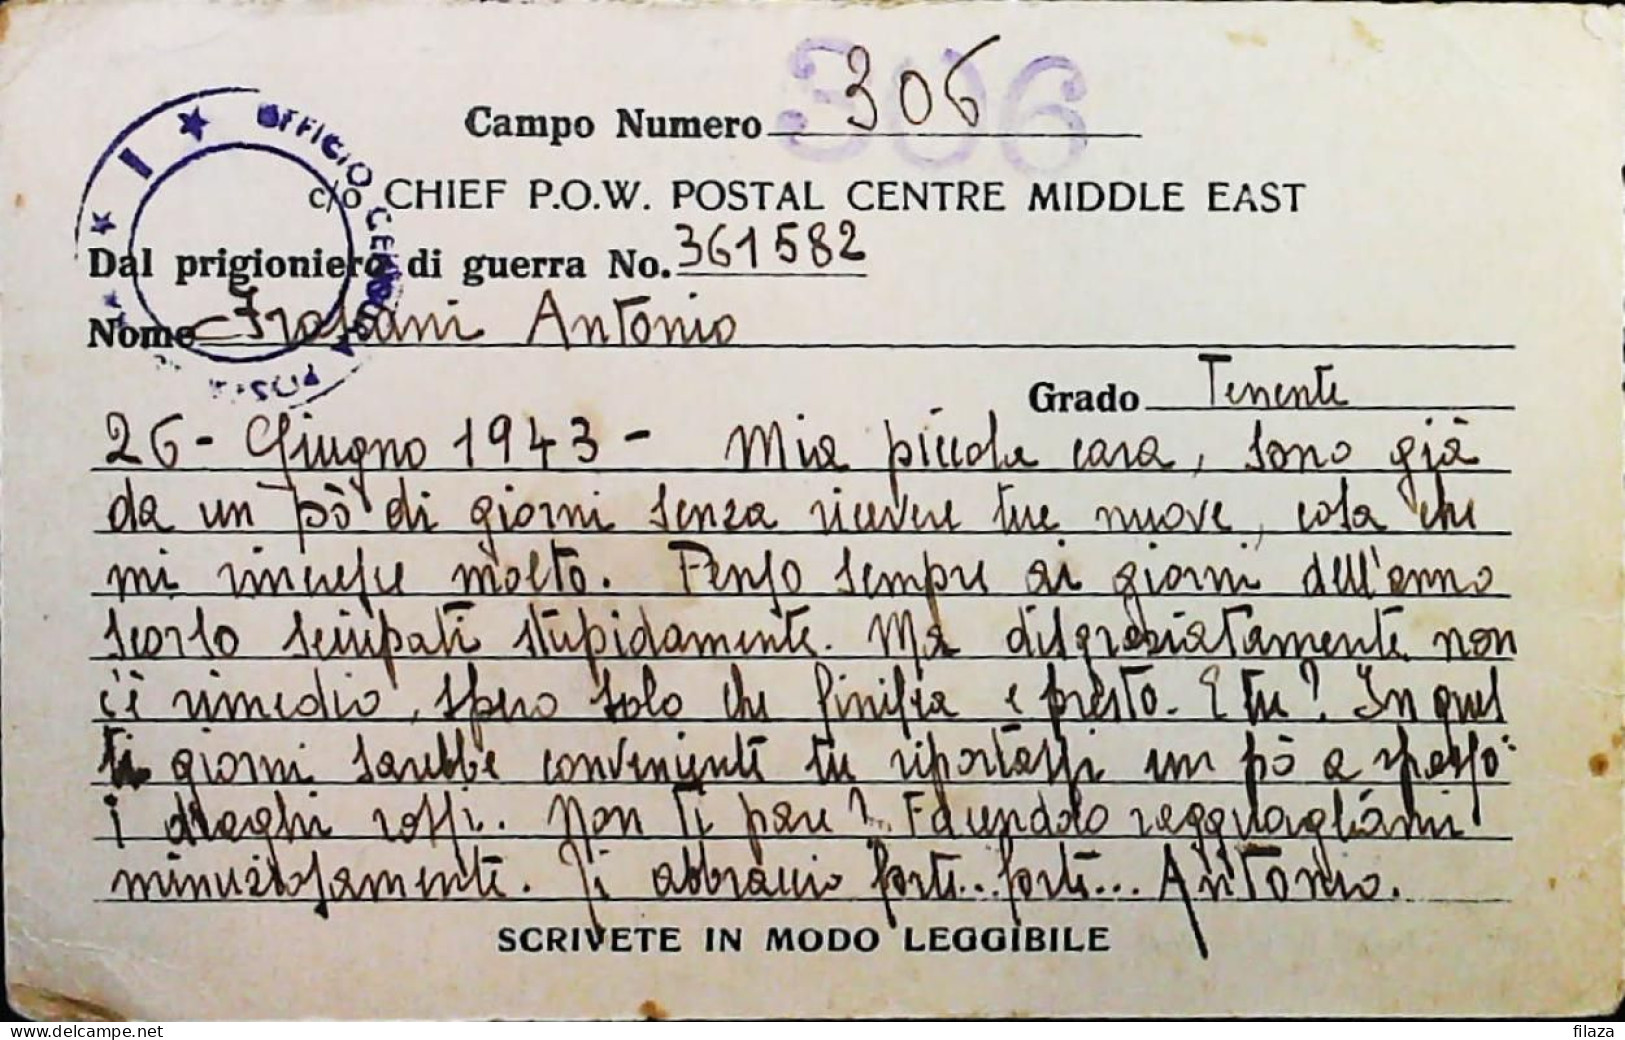 306
Campo Numero 306
c/o CHIEF P.O.W. POSTAL CENTRE MIDDLE EAST
Dal prigioniero di guerra No. 361582
Nome Antonio
Grado Tenente
26 - Giugno 1943 - Mia piccola cara, sono già
da un pò di giorni senza ricevere tue nuove, cosa che
mi rincresce molto. Penso sempre ai giorni dell'anno
scorso sciupati stupidamente. Ma disgraziatamente non
c'è rimedio, spero solo che finisca e presto. E tu? In ques
ti giorni sarebbe conveniente tu riportassi un pò a spasso
i draghi rossi. Non ti pare? Facendolo ragguagliami
minuziosamente. Ti abbraccio forte... forte... Antonio.
SCRIVETE IN MODO LEGGIBILE
UFFICIO CENSURA POSTA
filaza